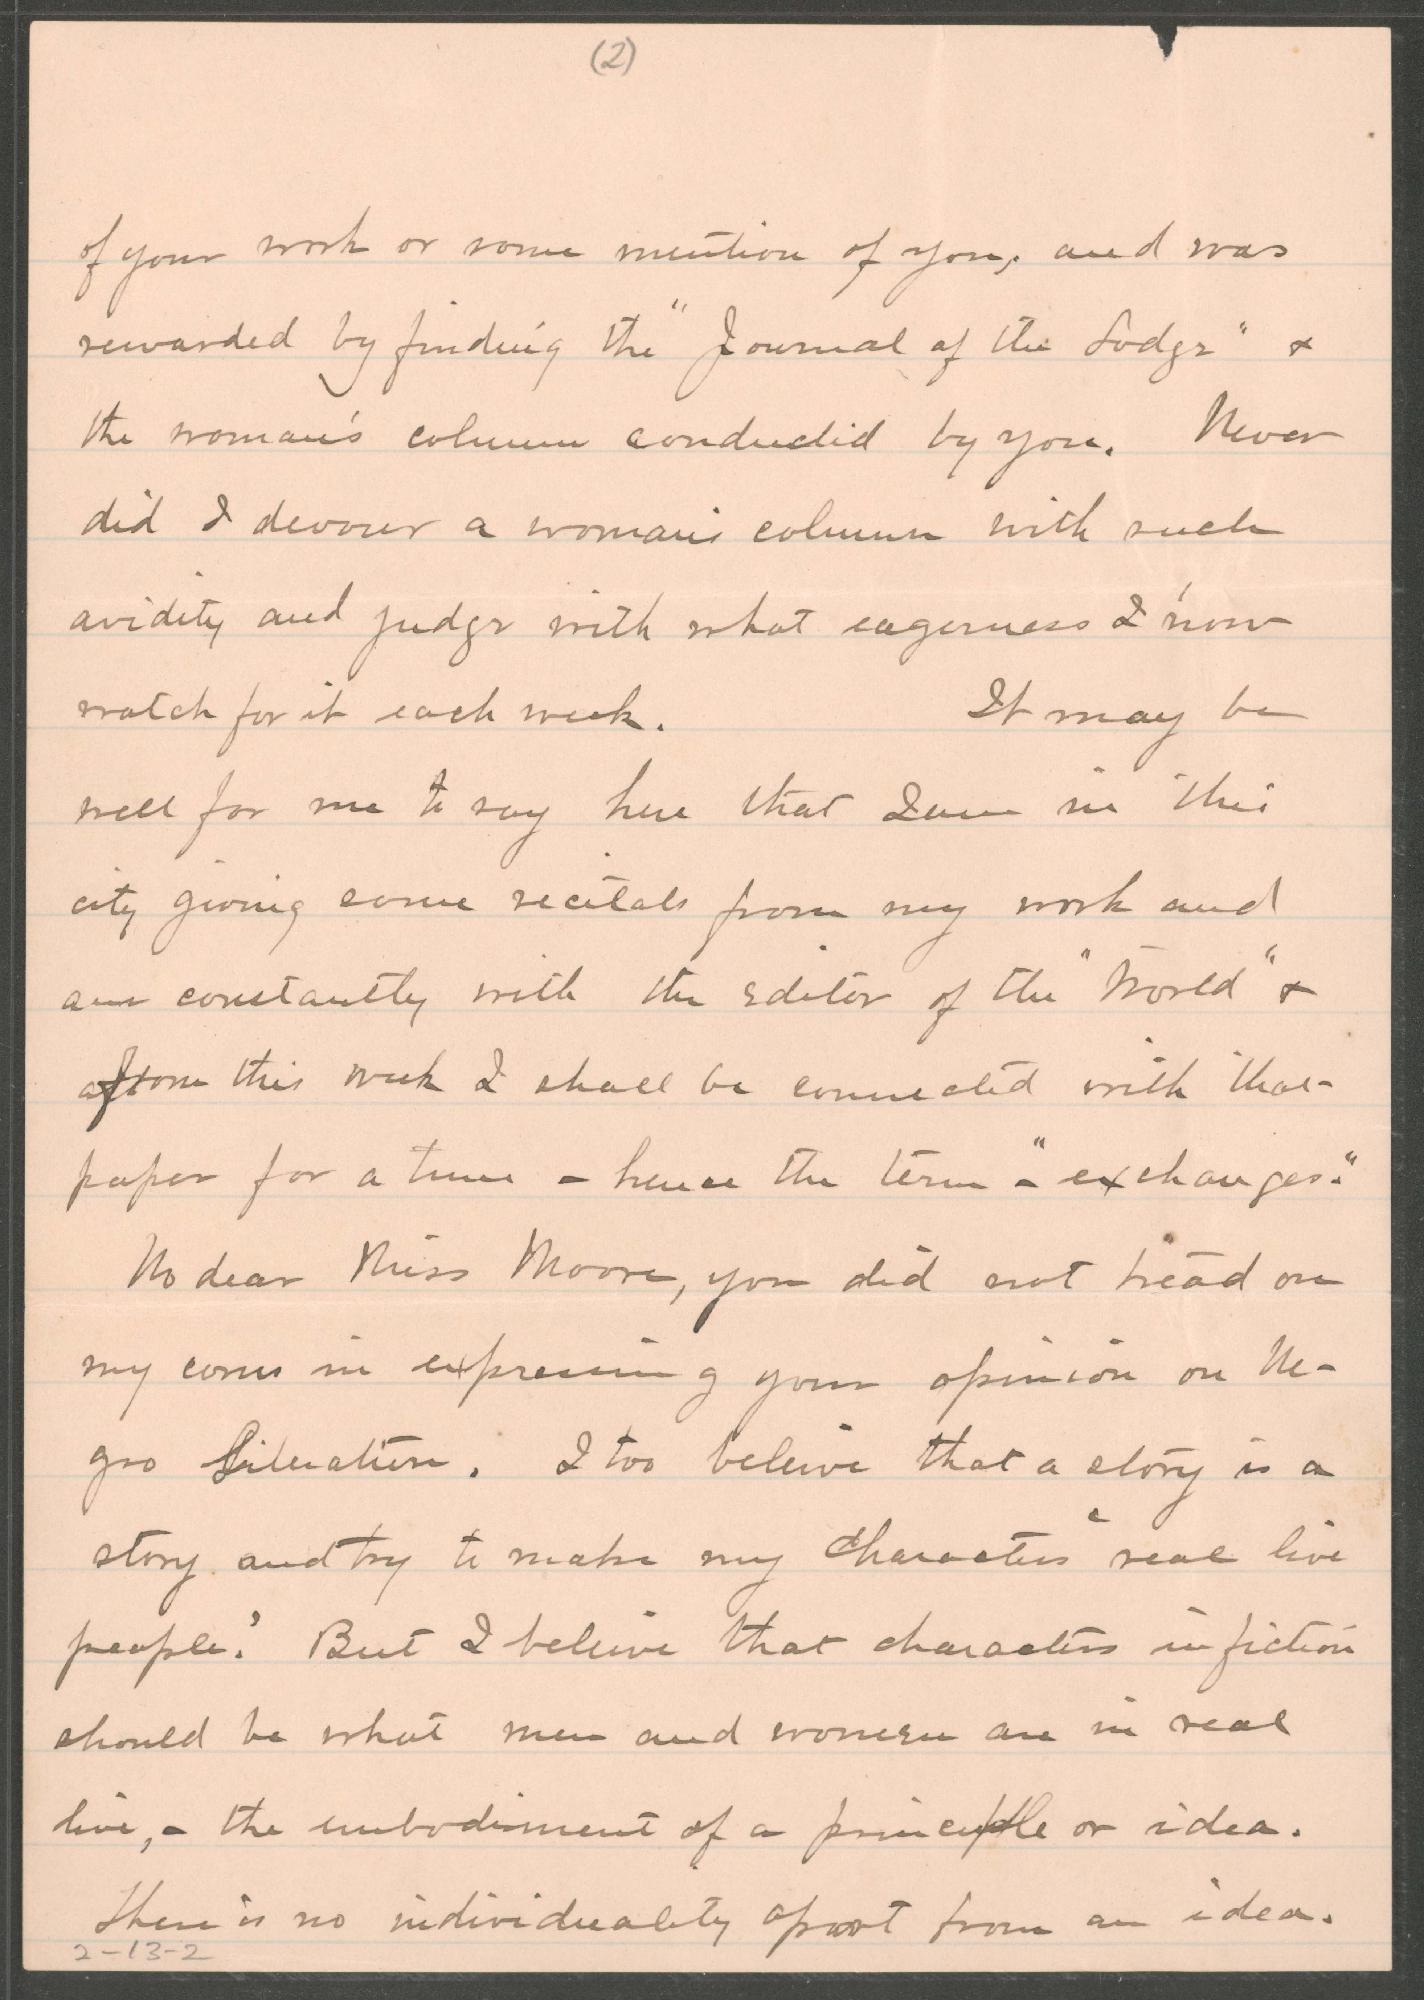 (2)
of your work or some mention of you, and was
rewarded by finding the "Journal of the Lodge" &
the woman's column conducted by you. Never
did I devour a woman's column with such
avidity and judge with what eagerness I now
watch for it each week. It may be
well for me to say here that I am in this
city giving some recitals from my work and
am constantly with the editor of the "World" &
from this week I shall be connected with that
paper for a time – hence the term – "exchanges."
No dear Miss Moore, you did not tread on
my corns in expressing your opinion on Ne-
gro Literature. I too beleive that a story is a
story and try to make my characters "real live
people." But I beleive that characters in fiction
should be what men and women are in real
live, – the embodiment of a principle or idea.
There is no individuality apart from an idea.
2-13-2